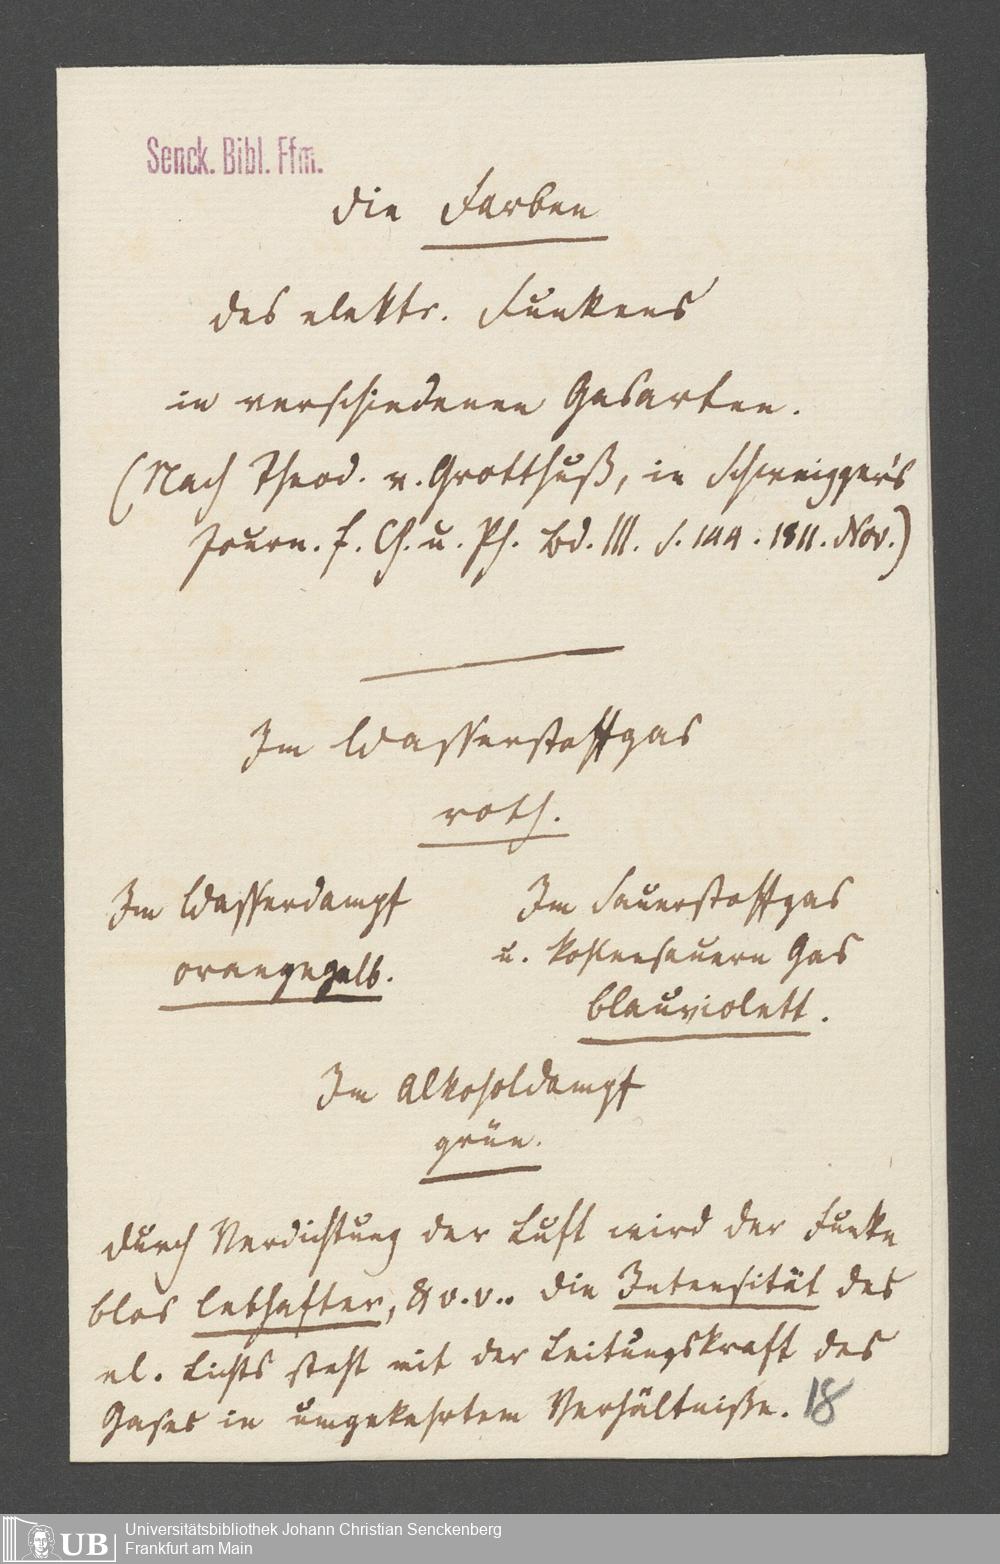 Senck. Bibl. Ffm.
Die Farben
des elektr. Funkens
in verschiedenen Gasarten.
(Nach Theod. v. Grotthuß, in Schweigger's
Journ. f. Ch. u. Ph. Bd. III. S. 144. 1811. Nov.)
Im Wasserstoffgas
roth.
Im Wasserdampf
orangegelb.
Im Sauerstoffgas
u. kohlensauern Gas
blauviolett.
Im Alkoholdampf
grün.
Durch Verdichtung der Luft wird der Funke
blos lebhafter, & v. v.. Die Intensität des
el. Lichts steht mit der Leitungskraft des
Gases in umgekehrtem Verhältniße. 18
UB
Universitätsbibliothek Johann Christian Senckenberg
Frankfurt am Main